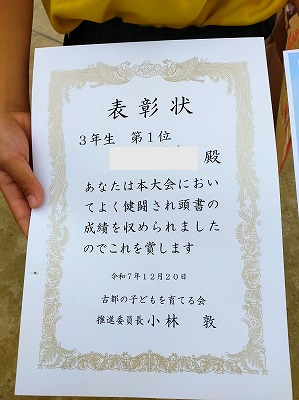 表彰状
3年生 第1位
殿
あなたは本大会におい
てよく健闘され頭書の
成績を収められました
のでこれを賞します
令和7年12月20日
古都の子どもを育てる会
推進委員長 小林 敦